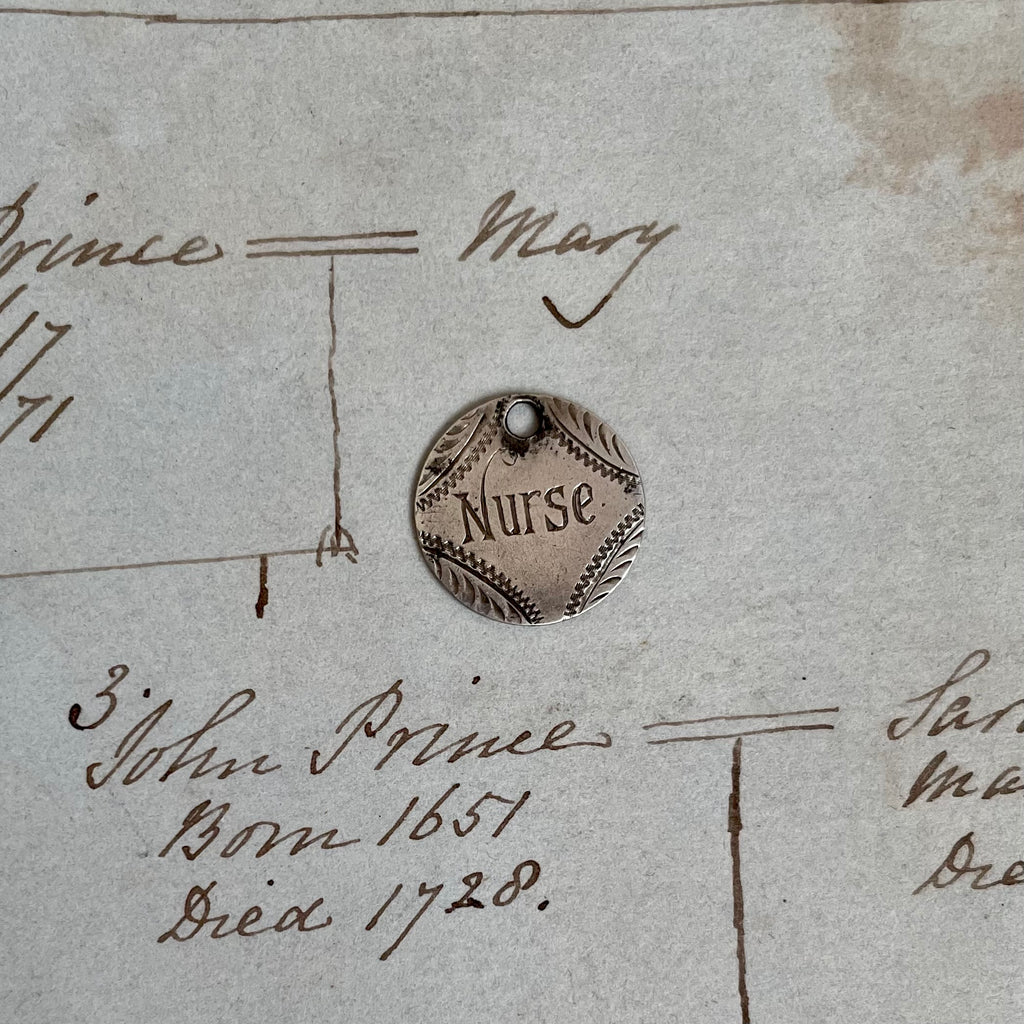 Prince Mary
17
71
Nurse
3. John Prince
Born 1651
Died 1728.